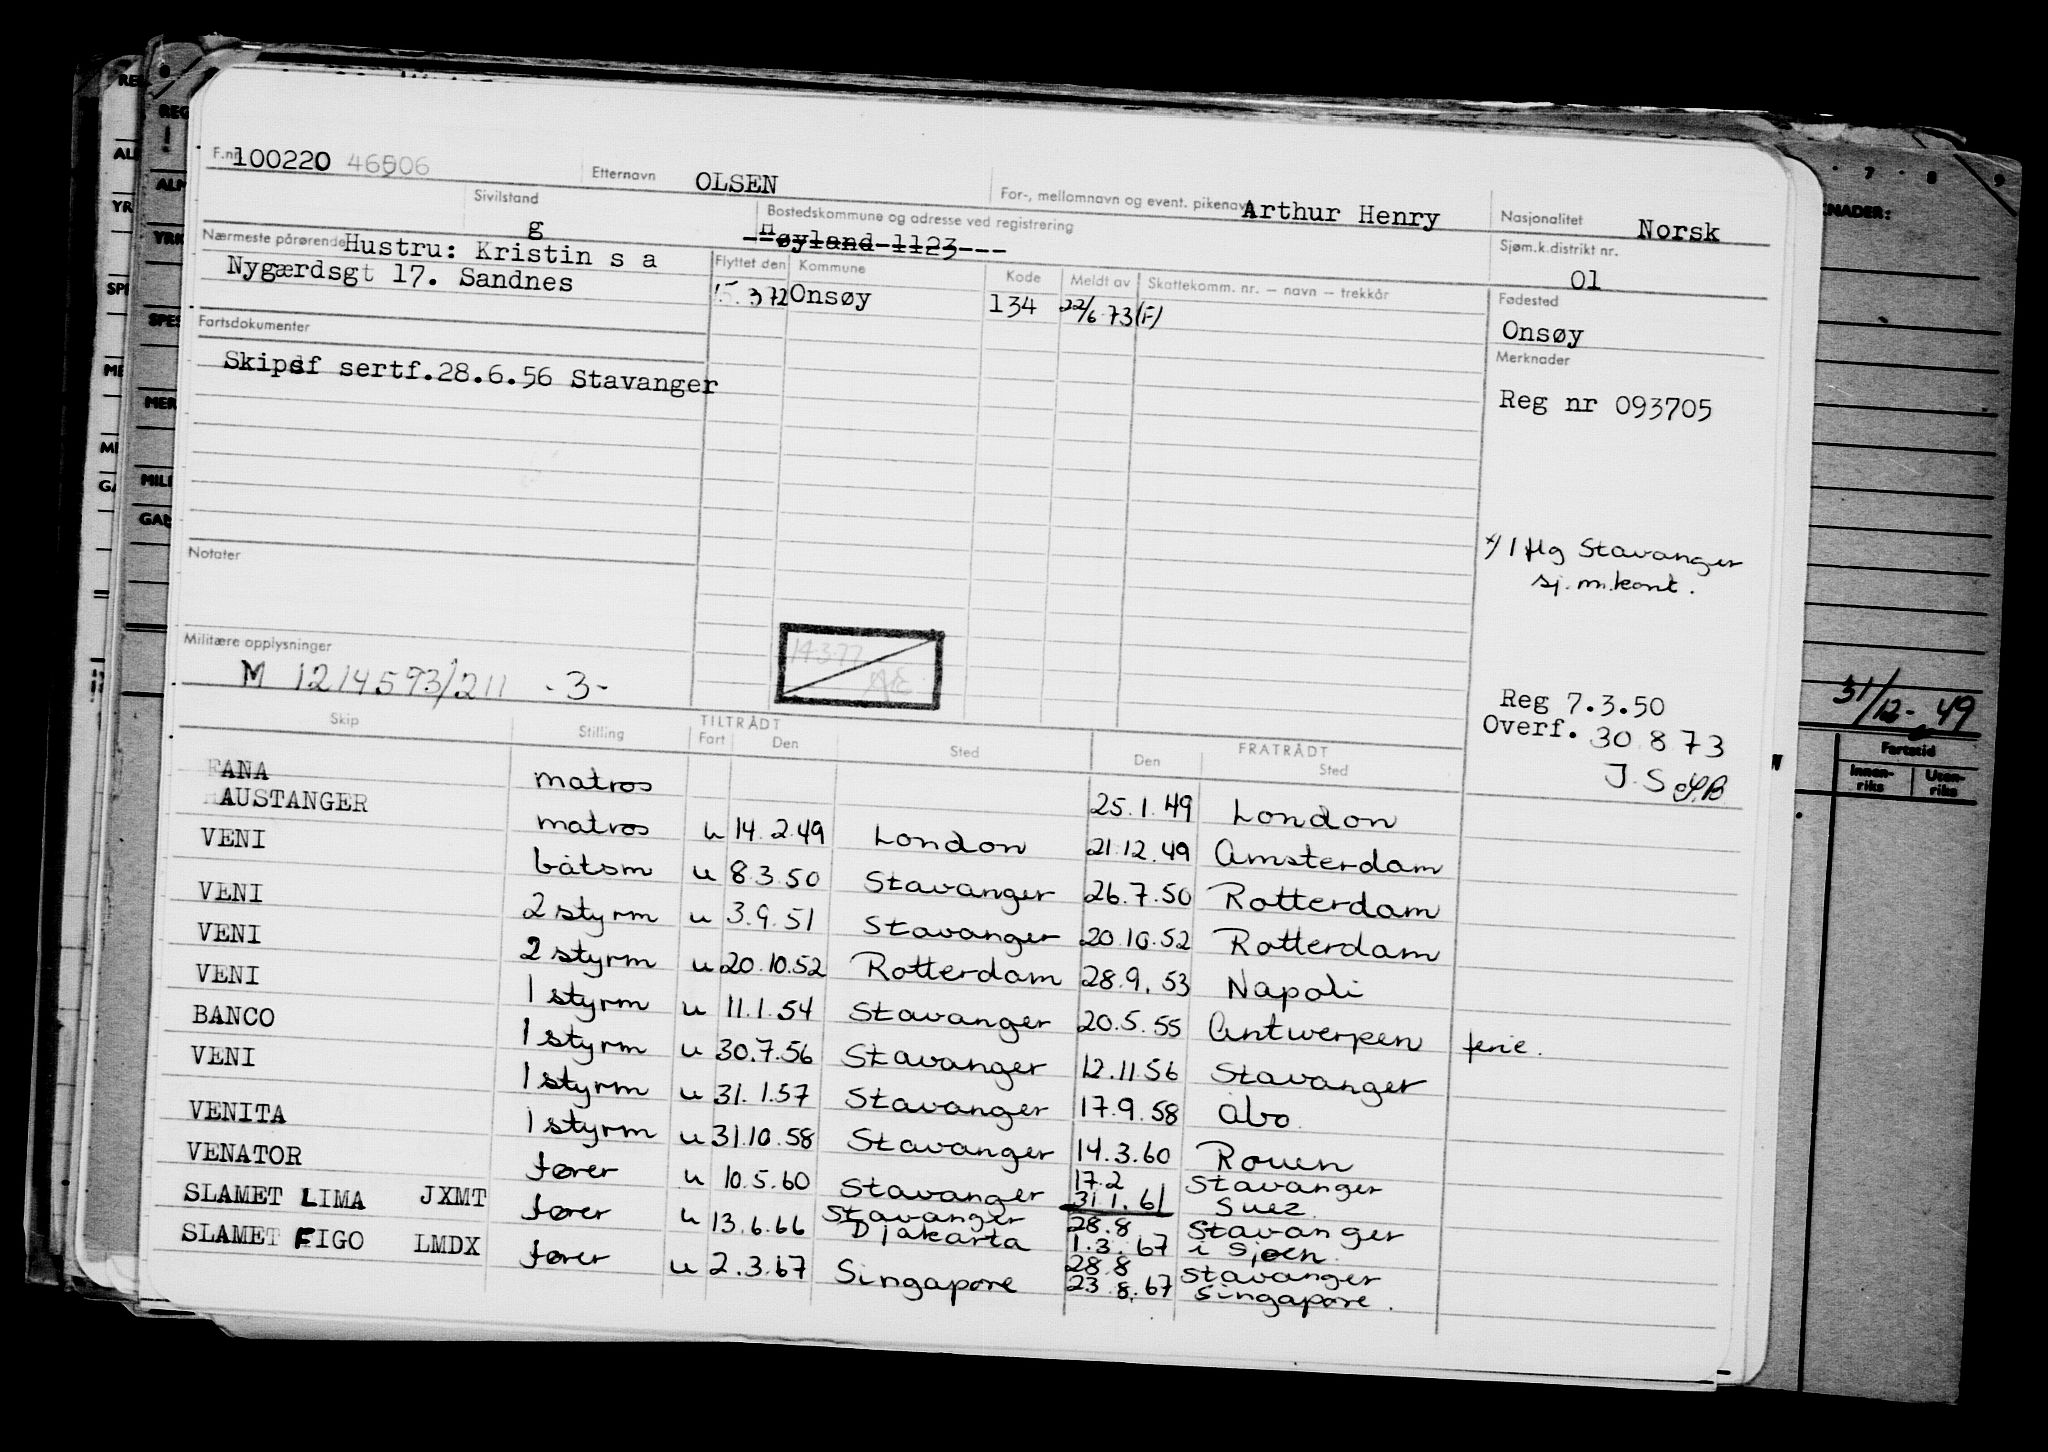 F.nr. 100220 46506 Etternavn OLSEN For-, mellomnavn og event. pikenavn Arthur Henry Nasjonalitet Norsk
Sivilstand g Bostedskommune og adresse ved registrering Høyland 1123 Sjøm.k.distrikt nr. 01
Nærmeste pårørende Hustru: Kristin s a
Nygærdsgt 17. Sandnes
Flyttet den Kommune Kode Meldt av Skattekomm. nr. — navn — trekkår
15.3 72 Onsøy 134 22/6 73 (F)
Fødested
Onsøy
Fartsdokumenter
Skipsf sertf.28.6.56 Stavanger
Merknader
Reg nr 093705
x/ 1 flg Stavanger
sj.m.kont.
Notater
Militære opplysninger
M 1214593/211 -3-
14.3.77
Reg 7.3.50
Overf. 30.8 73
J.S
Skip Stilling TILTRÅDT FRATRÅDT
Fart Den Sted Den Sted
FANA matros 25.1.49 London
HAUSTANGER matros u 14.2.49 London 21.12.49 Amsterdam
VENI båtsm u 8.3.50 Stavanger 26.7.50 Rotterdam
VENI 2 styrm u 3.9.51 Stavanger 20.10.52 Rotterdam
VENI 2 styrm u 20.10.52 Rotterdam 28.9.53 Napoli
VENI 1 styrm u 11.1.54 Stavanger 20.5.55 Antwerpen ferie.
BANCO 1 styrm u 30.7.56 Stavanger 12.11.56 Stavanger
VENI 1 styrm u 31.1.57 Stavanger 17.9.58 Åbo
VENITA 1 styrm u 31.10.58 Stavanger 14.3.60 Rouen
VENATOR fører u 10.5.60 Stavanger 17.2 Stavanger
31.1.61 Suez
SLAMET LIMA JXMT fører u 13.6.66 Stavanger 28.8 Stavanger
Djakarta 1.3.67 i Sjøen.
SLAMET FIGO LMDX fører u 2.3.67 Singapore 28.8 Stavanger
23.8.67 Singapore.
31/12-49
Fartstid
Innen-riks Uten-riks